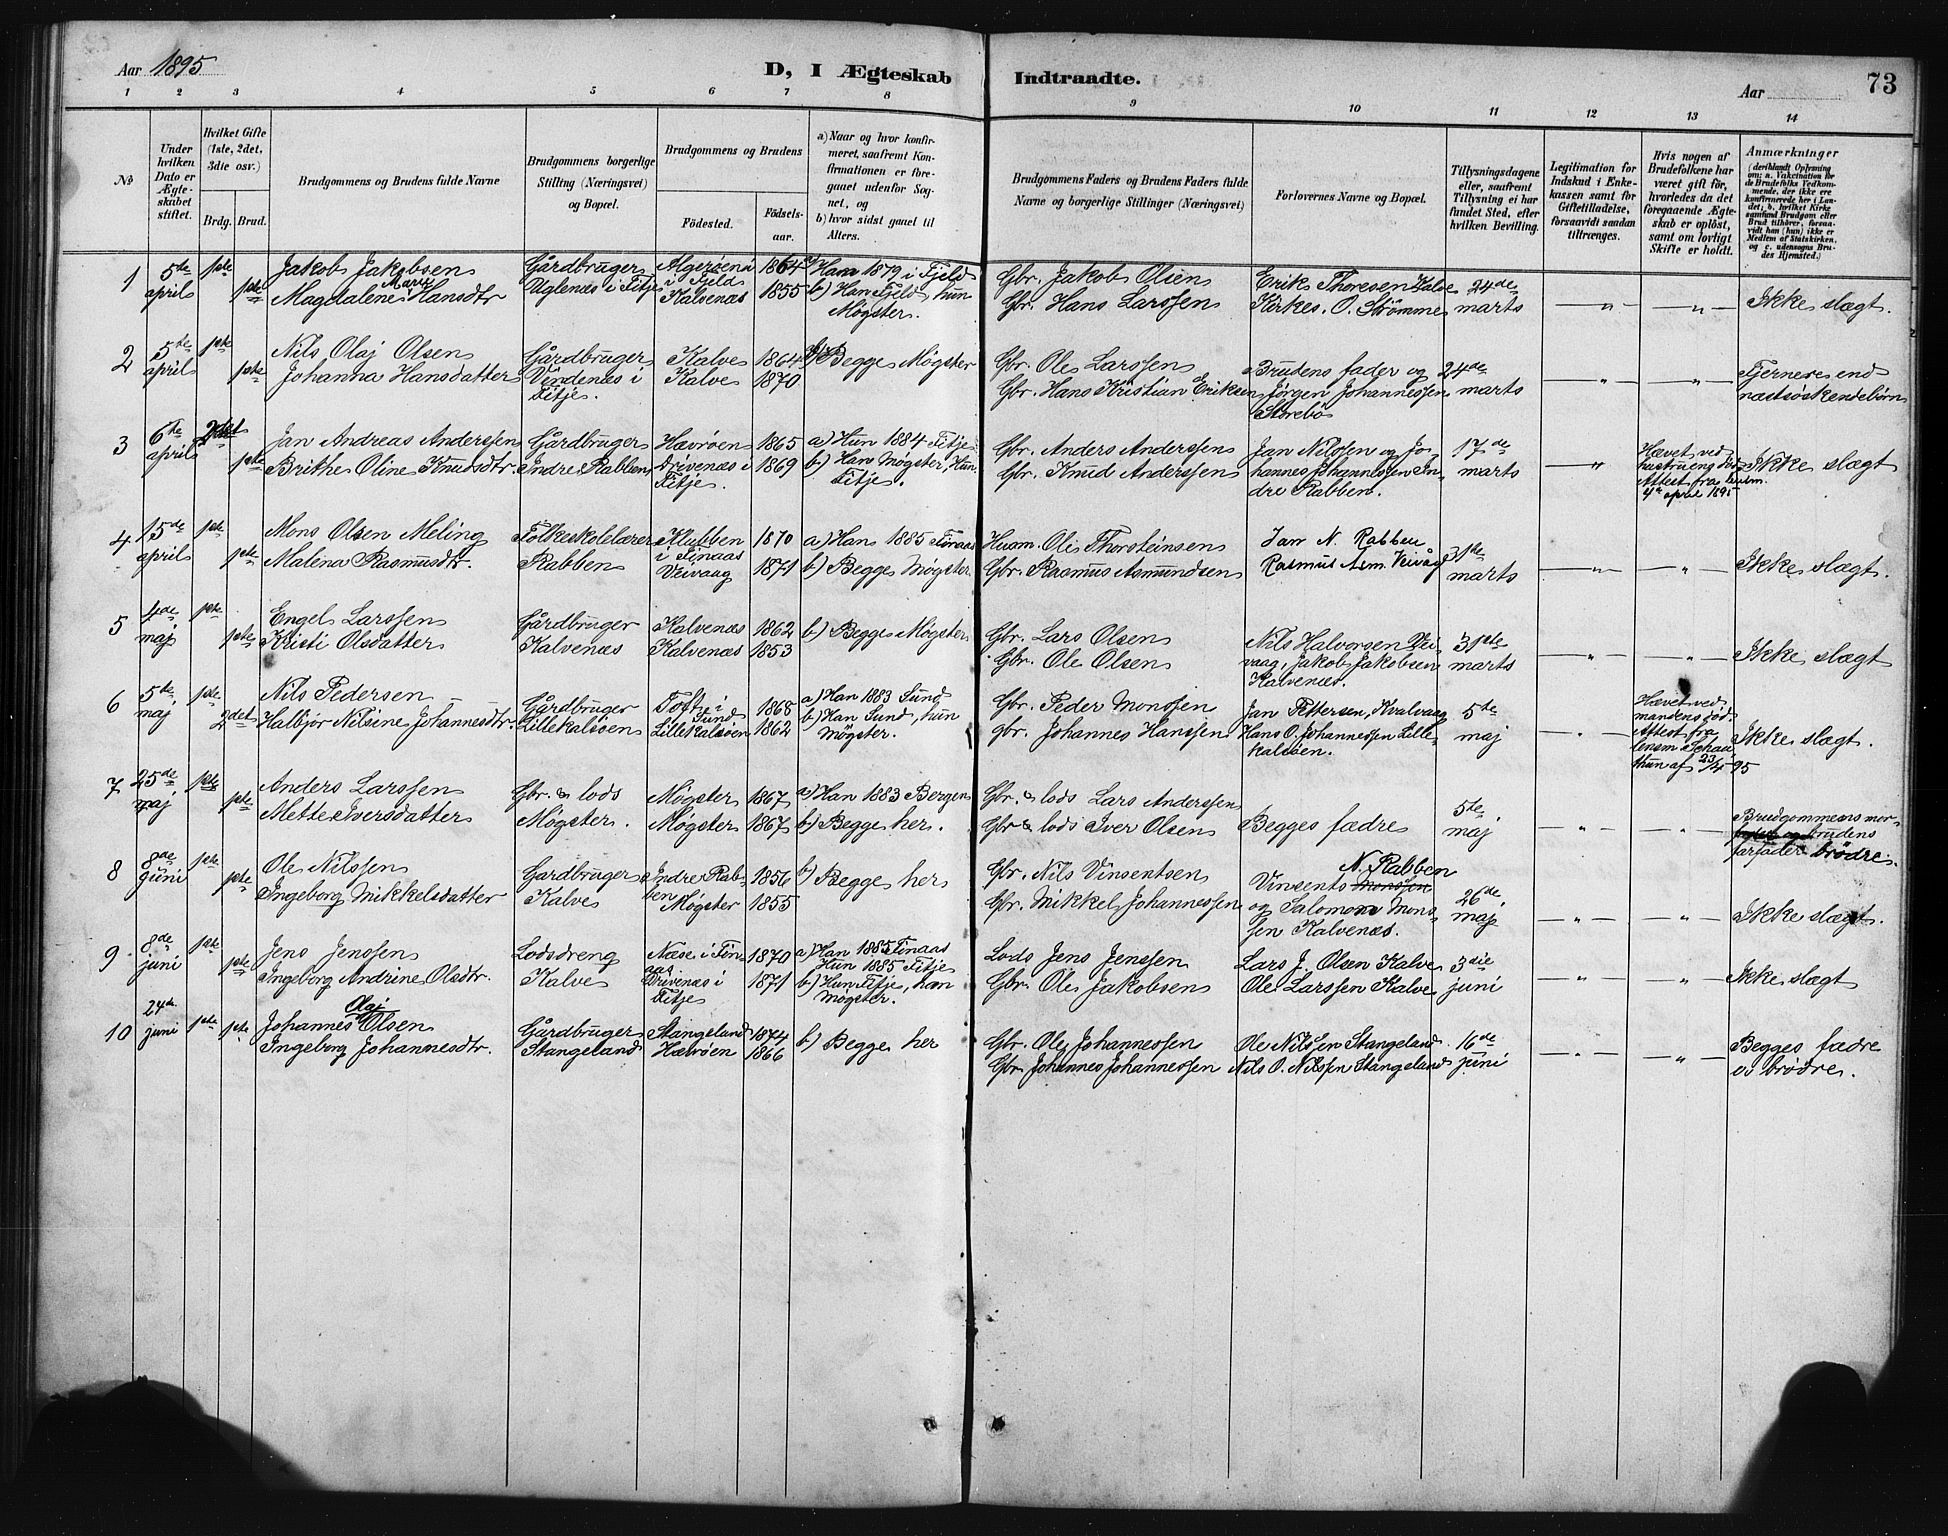 Aar 1895
D, I Ægteskab Indtraadte.
Aar
73
1 2 3 4 5 6 7 8 9 10 11 12 13 14
No
Under hvilken Dato er Ægteskabet stiftet.
Hvilket Gifte (1ste, 2det, 3die osv.)
Brdg. Brud.
Brudgommens og Brudens fulde Navne
Brudgommens borgerlige Stilling (Næringsvei) og Bopæl.
Brudgommens og Brudens
Fødested.
Fødselsaar.
a) Naar og hvor konfirmeret, saafremt Konfirmationen er foregaaet udenfor Sognet, og
b) hvor sidst gaaet til Alters.
Brudgommens Faders og Brudens Faders fulde Navne og borgerlige Stillinger (Næringsvei)
Forlovernes Navne og Bopæl.
Tillysningsdagene eller, saafremt Tillysning ei har fundet Sted, efter hvilken Bevilling.
Legitimation for Indskud i Enkekassen samt for Giftetilladelse, forsaavidt saadan tiltrænges.
Hvis nogen af Brudefolkene har været gift før, hvorledes da det foregaaende Ægteskab er opløst, samt om lovligt Skifte er holdt.
Anmærkninger
(deriblandt Oplysning om: a. Vakcination for de Brudefolks Vedkommende, der ikke ere konfirmerede her i Landet; b. hvilket Kirkesamfund Brudgom eller Brud tilhører, forsaavidt han (hun) ikke er Medlem af Statskirken, og c. udensogns Brudes Hjemsted.)
1 5te april 1ste 1ste
Jakob Jakobsen
Magdalene Marie Hansdtr
Gårdbruger
Uglenæs i Fitje
Algerøen i Fjeld 1864
Kalvenæs 1855
a) Han 1879 i Fjeld
b) Han Fjeld, hun Møgster.
Gbr. Jakob Olsen
Gbr. Hans Larssen
Erik Thoresen Kalve
Kirkes. O. Strømme
24de marts
—"— —"—
Ikke slægt.
2 5te april 1ste 1ste
Nils Olaj Olsen
Johanna Hansdatter
Gårdbruger
Vindenæs i Fitje.
Kalve 1864
Kalve 1870
b) Begge Møgster
Gbr. Ole Larssen
Gbr. Hans Kristian Eriksen
Brudens fader og
Jørgen Johannessen
Storebø
24de marts
—"— —"—
Fjernere end
næstsøskendebørn
3 6te april 2det 1ste
Jan Andreas Anderssen
Brithe Oline Knudsdtr.
Gårdbruger
Indre Rabben
Hævrøen 1865
Drivenæs i Fitje. 1869
a) Hun 1884 Fitje
b) Han Møgster, Hun Fitje.
Gbr. Anders Anderssen
Gbr. Knud Anderssen
Jan Nilssen og Johannes Johannessen Indre Rabben.
17de marts
—"—
Hævet ved
Attest fra
4de april 1895
Ikke slægt
4 15de april 1ste 1ste
Mons Olsen Meling
Malena Rasmusdtr.
Folkeskolelærer
Rabben
Klubben i Finaas 1870
Veivaag 1871
a) Han 1885 Finaas
b) Begge Møgster
Husm. Ole Thorsteinsen
Gbr. Rasmus Asmundsen
Jan N. Rabben
Rasmus Asm. Veivåg
31de marts
—"— —"—
Ikke slægt.
5 4de maj 1ste 1ste
Engel Larssen
Kristi Olsdatter
Gårdbruger
Kalvenæs
Kalvenæs 1862
Kalvenæs 1853
b) Begge Møgster
Gbr. Lars Olsen
Gbr. Ole Olsen
Nils Halvorsen Veivaag, Jakob Jakobsen
Kalvenæs.
31ste marts
—"— —"—
Ikke slægt
6 5te maj 1ste 2det
Nils Pedersen
Halbjør Nilsine Johannesdtr.
Gårdbruger
Lillekalsøen
Tofte i Sund 1868
Lillekalsøen 1862
a) Han 1883 Sund
b) Han Sund, hun Møgster.
Gbr. Peder Monssen
Gbr. Johannes Hanssen
Jan Pettersen, Kvalvaag
Hans O. Johannessen Lillekalsøen.
5te maj
—"—
Hævet ved
mandens død.
Attest fra
lensm.
af 23/4 95
Ikke slægt.
7 25de maj 1ste 1ste
Anders Larssen
Mette Iversdatter
Gbr. & lods
Møgster.
Møgster 1867
Møgster 1867
a) Han 1883 Bergen
b) Begge her.
Gbr. & lods Lars Anderssen
Gbr. & lods Iver Olsen
Begges fædre
5te maj
—"— —"—
Brudgommens morfader og brudens
farfader brødre.
8 8de juni 1ste 1ste
Ole Nilssen
Ingeborg Mikkelsdatter
Gårdbruger
Kalve
Indre Rabben 1856
Møgster 1855
b) Begge her
Gbr. Nils Vinsentsen
Gbr. Mikkel Johannessen
Vinsents Monssen N. Rabben
og Salomon Monssen Kalvenæs.
26de maj
—"— —"—
Ikke slægt.
9 8de juni 1ste 1ste
Jens Jenssen
Ingeborg Andrine Olsdtr.
Lodsdreng
Kalve
Næse i Finaas 1870
Drivenæs i Fitje 1871
a) Han 1885 Finaas
Hun 1885 Fitje
b) Hun Fitje, han Møgster.
Lods Jens Jenssen
Gbr. Ole Jakobsen
Lars J. Olsen Kalve
Ole Larssen Kalve
3die juni
—"— —"—
Ikke slægt
10 24de juni 1ste 1ste
Johannes Olaj Olsen
Ingeborg Johannesdtr.
Gårdbruger
Stangeland
Stangeland 1874
Hævrøen 1866
b) Begge her
Gbr. Ole Johannessen
Gbr. Johannes Johannessen
Ole Nilssen Stangeland
Nils O. Nilssen Stangeland
16de juni
—"— —"—
Begges fædre
brødre.